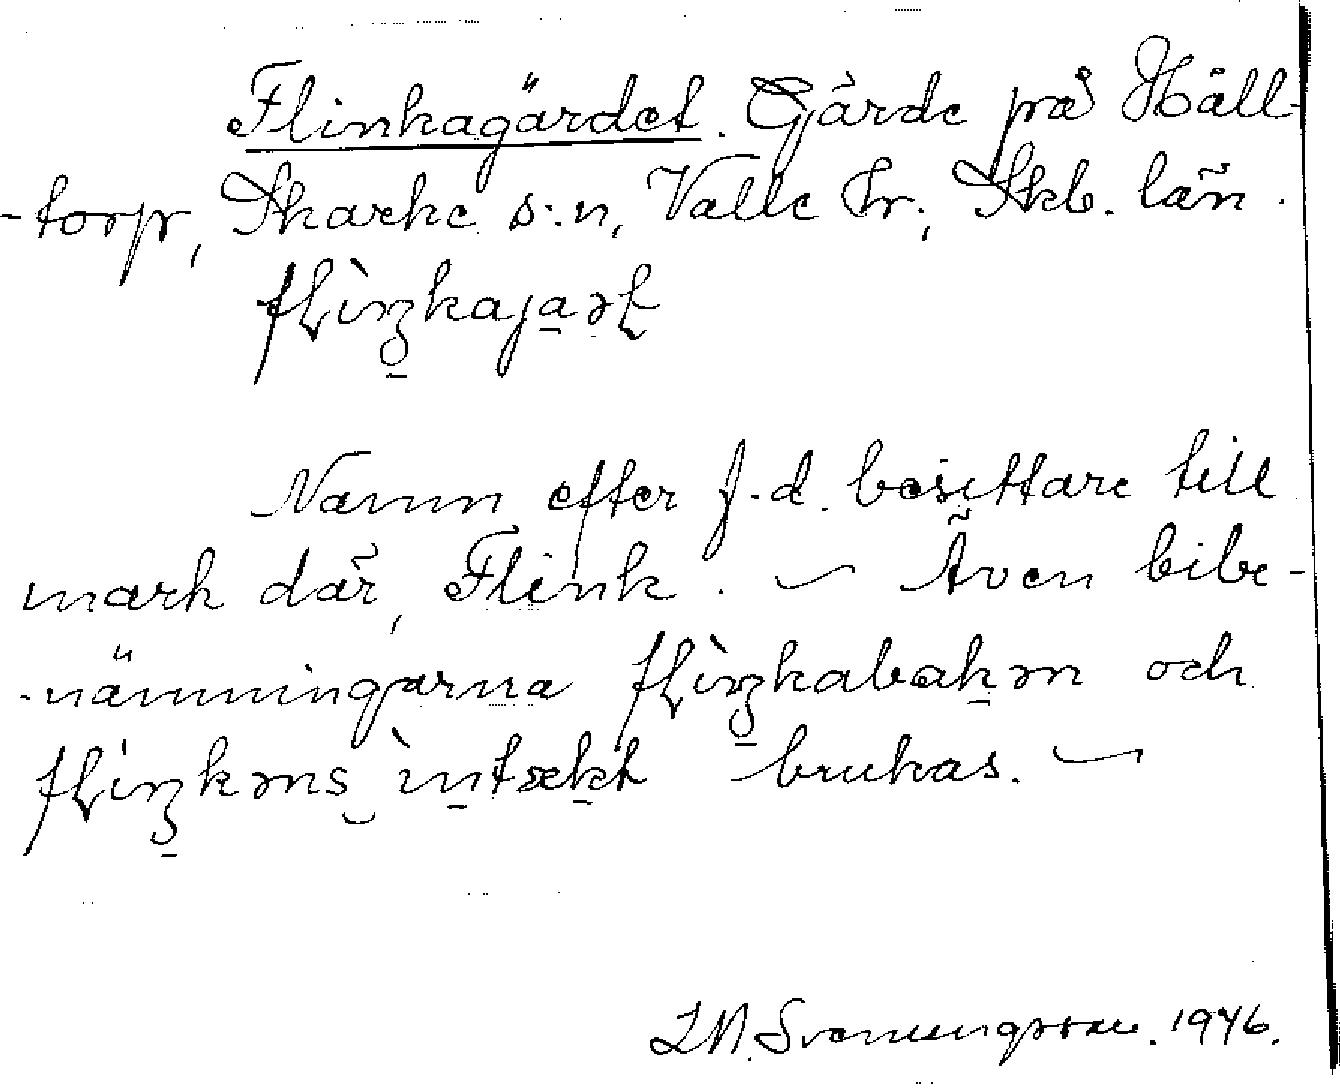 Flinkagärdet. Gärde på Häll-
-torp, Skarke s:n, Valle hr., Skb. län.
flìŋkajaʀt
Namn efter f.d. besittare till
mark där, Flink. — Även bibe-
-nämningarna flìŋkabakən och
flìŋkəns ìntækt brukas. —
L.N. Svenungsson. 1946.